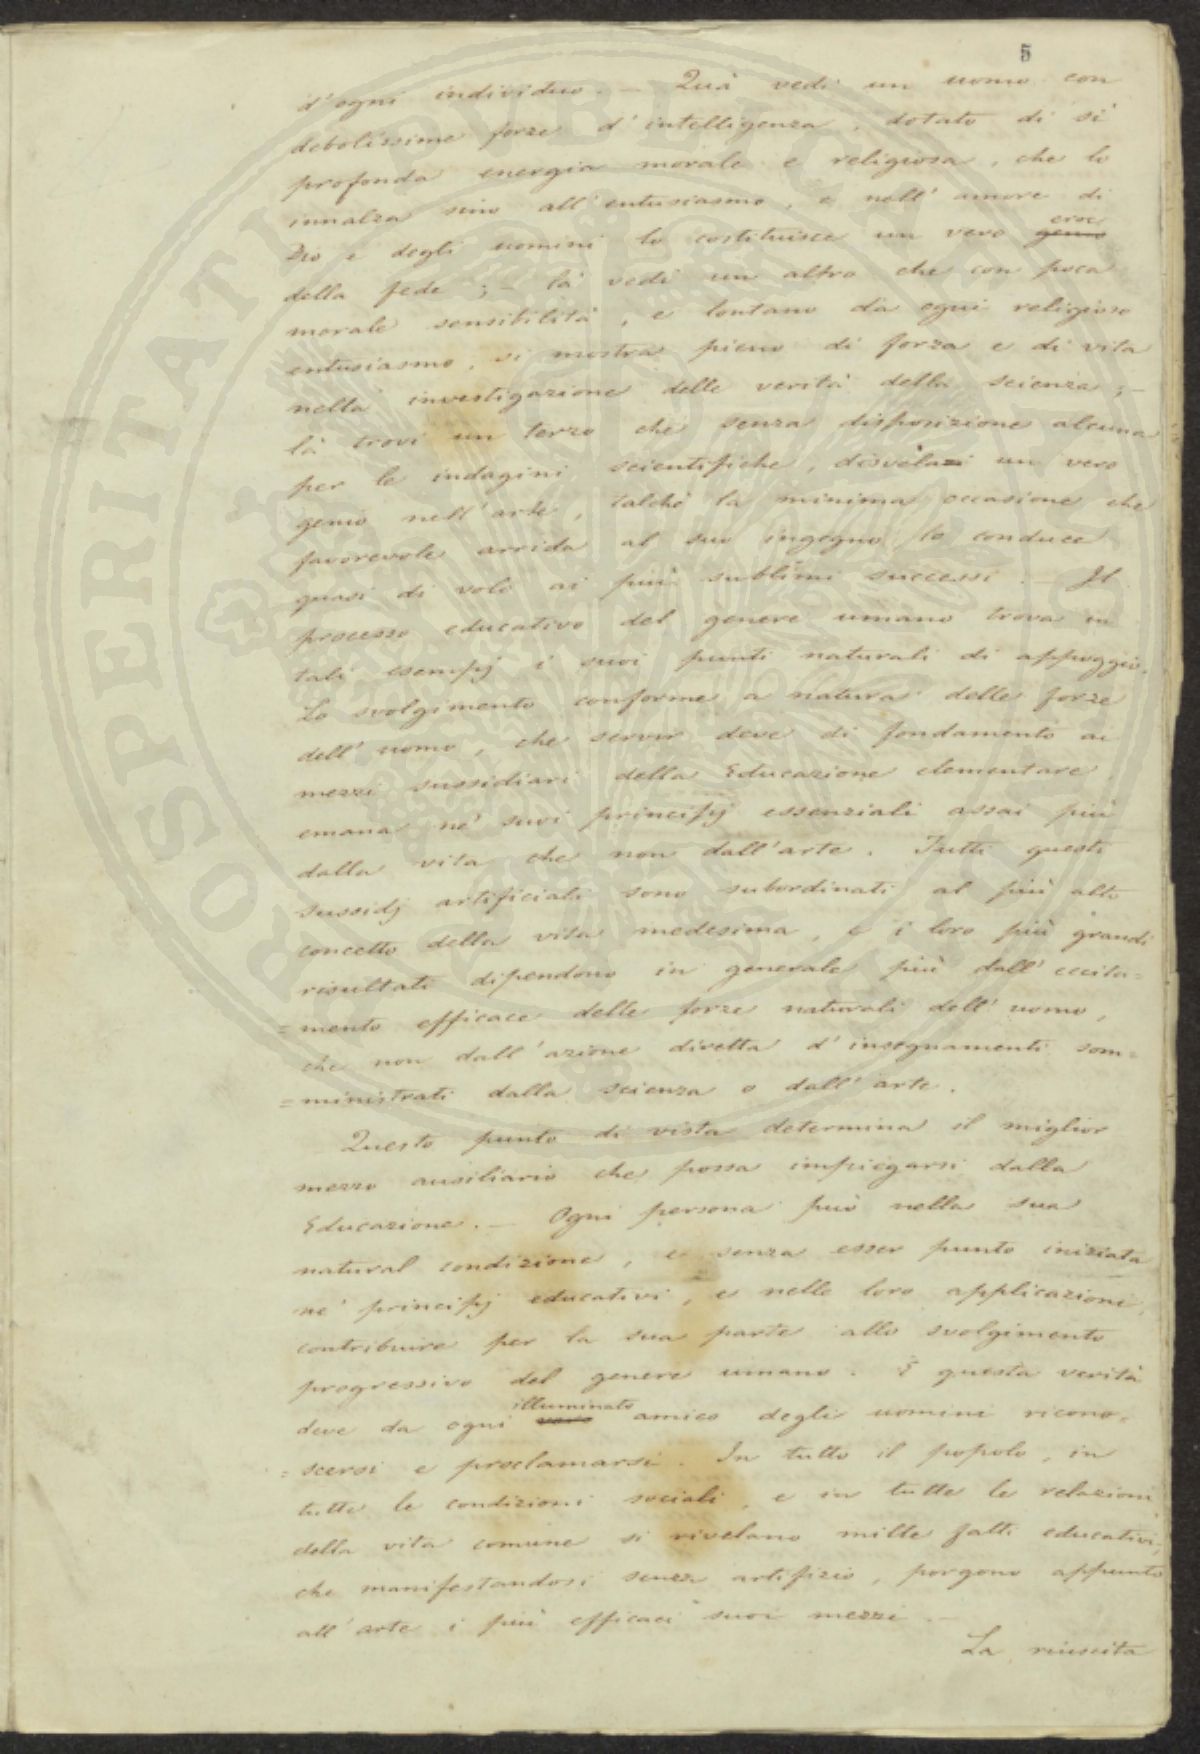 5
d'ogni individuo. — Quà vedi un uomo con
debolissime forze d'intelligenza, dotato di sì
profonda energia morale e religiosa, che lo
innalza sino all'entusiasmo, e nell'amore di
Dio e degli uomini lo costituisce un vero genio eroe
della fede; — là vedi un altro che con poca
morale sensibilità, e lontano da ogni religioso
entusiasmo, si mostra pieno di forza e di vita
nella investigazione delle verità della scienza; —
là trovi un terzo che senza disposizione alcuna
per le indagini scientifiche, disvelasi un vero
genio nell'arte, talchè la minima occasione che
favorevole arrida al suo ingegno lo conduce
quasi di volo ai più sublimi successi. — Il
processo educativo del genere umano trova in
tali esempj i suoi punti naturali di appoggio.
Lo svolgimento conforme a natura delle forze
dell'uomo, che servir deve di fondamento ai
mezzi sussidiari della Educazione elementare,
emana ne' suoi principj essenziali assai più
dalla vita che non dall'arte. Tutti questi
sussidj artificiali sono subordinati al più alto
concetto della vita medesima, e i loro più grandi
risultati dipendono in generale più dall'eccita=
=mento efficace delle forze naturali dell'uomo,
che non dall'azione diretta d'insegnamenti som=
=ministrati dalla scienza o dall'arte.
Questo punto di vista determina il miglior
mezzo ausiliario che possa impiegarsi dalla
Educazione. — Ogni persona può nella sua
natural condizione, e senza esser punto iniziata
ne' principj educativi, e nelle loro applicazioni,
contribuire per la sua parte allo svolgimento
progressivo del genere umano. E questa verità
deve da ogni vero illuminato amico degli uomini ricono=
=scersi e proclamarsi. In tutto il popolo, in
tutte le condizioni sociali, e in tutte le relazioni
della vita comune si rivelano mille fatti educativi,
che manifestandosi senza artifizio, porgono appunto
all'arte i più efficaci suoi mezzi. —
La riuscita
PROSPERITATI PUBLICAE